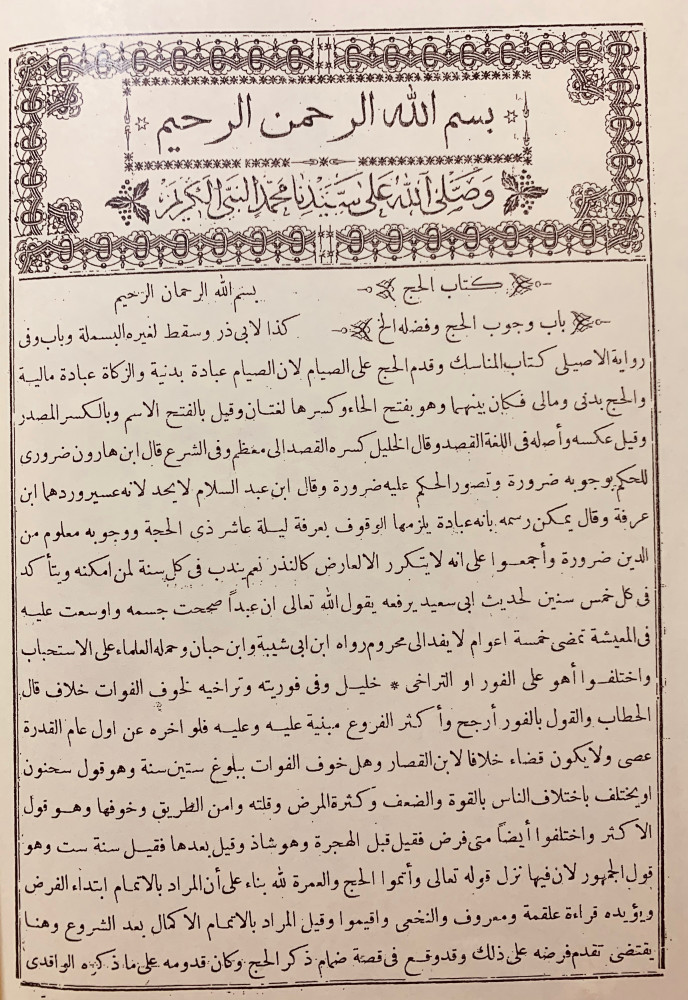 بسم الله الرحمن الرحيم
وصلى الله على سيدنا محمد النبي الكريم
كتاب الحج بسم الله الرحمان الرحيم
باب وجوب الحج وفضله الخ كذا لابى ذر وسقط لغيره البسملة وباب وفى
رواية الاصيلى كتاب المناسك وقدم الحج على الصيام لان الصيام عبادة بدنية والزكاة عبادة مالية
والحج بدنى ومالى فكان بينهما وهو بفتح الحاء وكسرها لغتان وقيل بالفتح الاسم وبالكسر المصدر
وقيل عكسه وأصله فى اللغة القصد وقال الخليل كسره القصد الى معظم وفى الشرع قال ابن هارون ضرورى
للحكم بوجوبه ضرورة وتصور الحكم عليه ضرورة وقال ابن عبد السلام لا يحد لانه عسير وردهما ابن
عرفة وقال يمكن رسمه بانه عبادة يلزمها الوقوف بعرفة ليلة عاشر ذى الحجة ووجوبه معلوم من
الدين ضرورة وأجمعوا على انه لا يتكرر الا لعارض كالنذر نعم يندب فى كل سنة لمن امكنه ويتأكد
فى كل خمس سنين لحديث ابى سعيد يرفعه يقول الله تعالى ان عبداً صححت جسمه واوسعت عليه
فى المعيشة تمضى خمسة اعوام لا يفد الى محروم رواه ابن ابى شيبة وابن حبان وحمله العلماء على الاستحباب
واختلفوا أهو على الفور او التراخى * خليل وفى فوريته وتراخيه لخوف الفوات خلاف قال
الحطاب والقول بالفور أرجح وأكثر الفروع مبنية عليه وعليه فلو اخره عن اول عام القدرة
عصى ولا يكون قضاء خلافا لابن القصار وهل خوف الفوات ببلوغ ستين سنة وهو قول سحنون
او يختلف باختلاف الناس بالقوة والضعف وكثرة المرض وقلته وامن الطريق وخوفها وهو قول
الاكثر واختلفوا أيضاً متى فرض فقيل قبل الهجرة وهو شاذ وقيل بعدها فقيل سنة ست وهو
قول الجمهور لان فيها نزل قوله تعالى وأتموا الحج والعمرة لله بناء على أن المراد بالاتمام ابتداء الفرض
ويؤيده قراءة علقمة ومعروف والنخعى واقيموا وقيل المراد بالاتمام الاكمال بعد الشروع وهنا
يقتضى تقدم فرضه على ذلك وقد وقع فى قصة ضمام ذكر الحج وكان قدومه على ما ذكره الواقدى